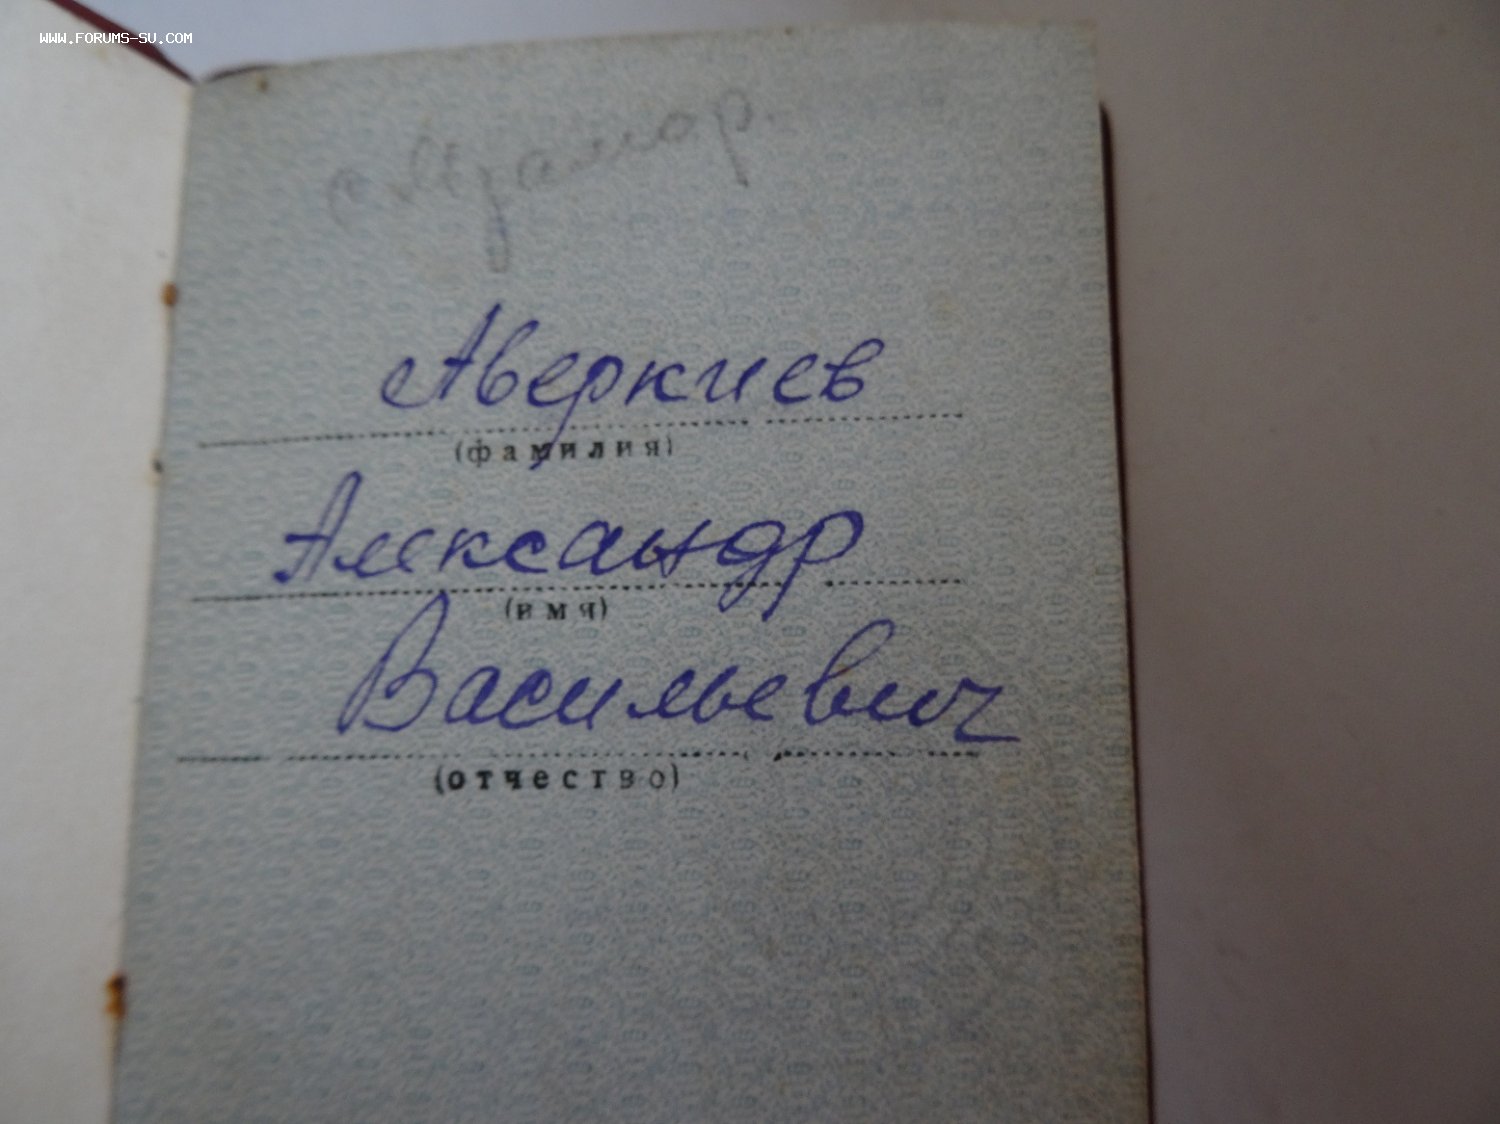 WWW.FORUMS-SU.COM
Аверкиев
(фамилия)
Александр
(имя)
Васильевич
(отчество)